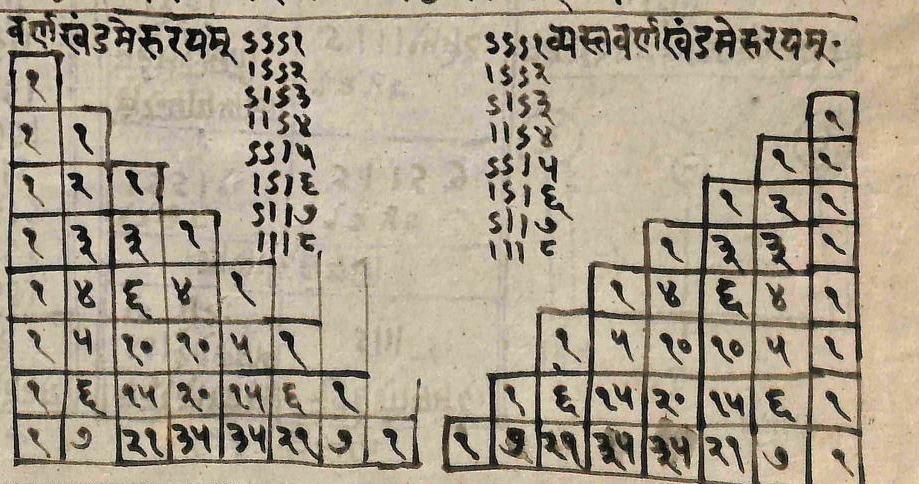 वर्णखंडमेरुरयम्
ऽऽऽ१
।ऽऽ२
ऽ।ऽ३
।।ऽ४
ऽऽ।५
।ऽ।६
ऽ।।७
।।।८
१
१ १
१ २ १
१ ३ ३ १
१ ४ ६ ४ १
१ ५ १० १० ५ १
१ ६ १५ २० १५ ६ १
१ ७ २१ ३५ ३५ २१ ७ १
ऽऽऽ१
व्यस्तवर्णखंडमेरुरयम्
।ऽऽ२
ऽ।ऽ३
।।ऽ४
ऽऽ।५
।ऽ।६
ऽ।।७
।।।८
१
१ १
१ २ १
१ ३ ३ १
१ ४ ६ ४ १
१ ५ १० १० ५ १
१ ६ १५ २० १५ ६ १
१ ७ २१ ३५ ३५ २१ ७ १